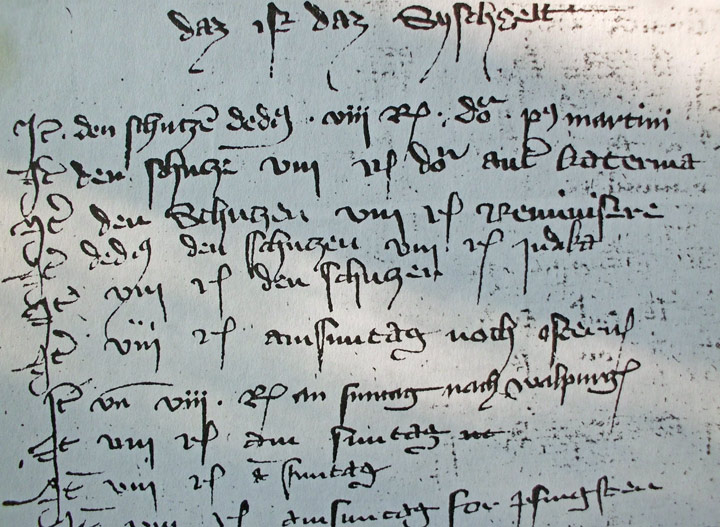 daz ist daz Syschgelt
Jt. den schutzē dedꝰ · viii Rß · do · pꝰ martini
Jt den schutzē viii rß do ante katerina
Jt den Schutzen viii rß Reminiscere
Jt dedꝰ den schutzen viii rß judika
Jt viii rß den schutzen
Jt viii rß am suntag noch ostern
Jt viii · Rß an suntag nach walpurg
Jt viii rß am suntag
Jt viii rß suntag
viii rß am suntag for pfingsten